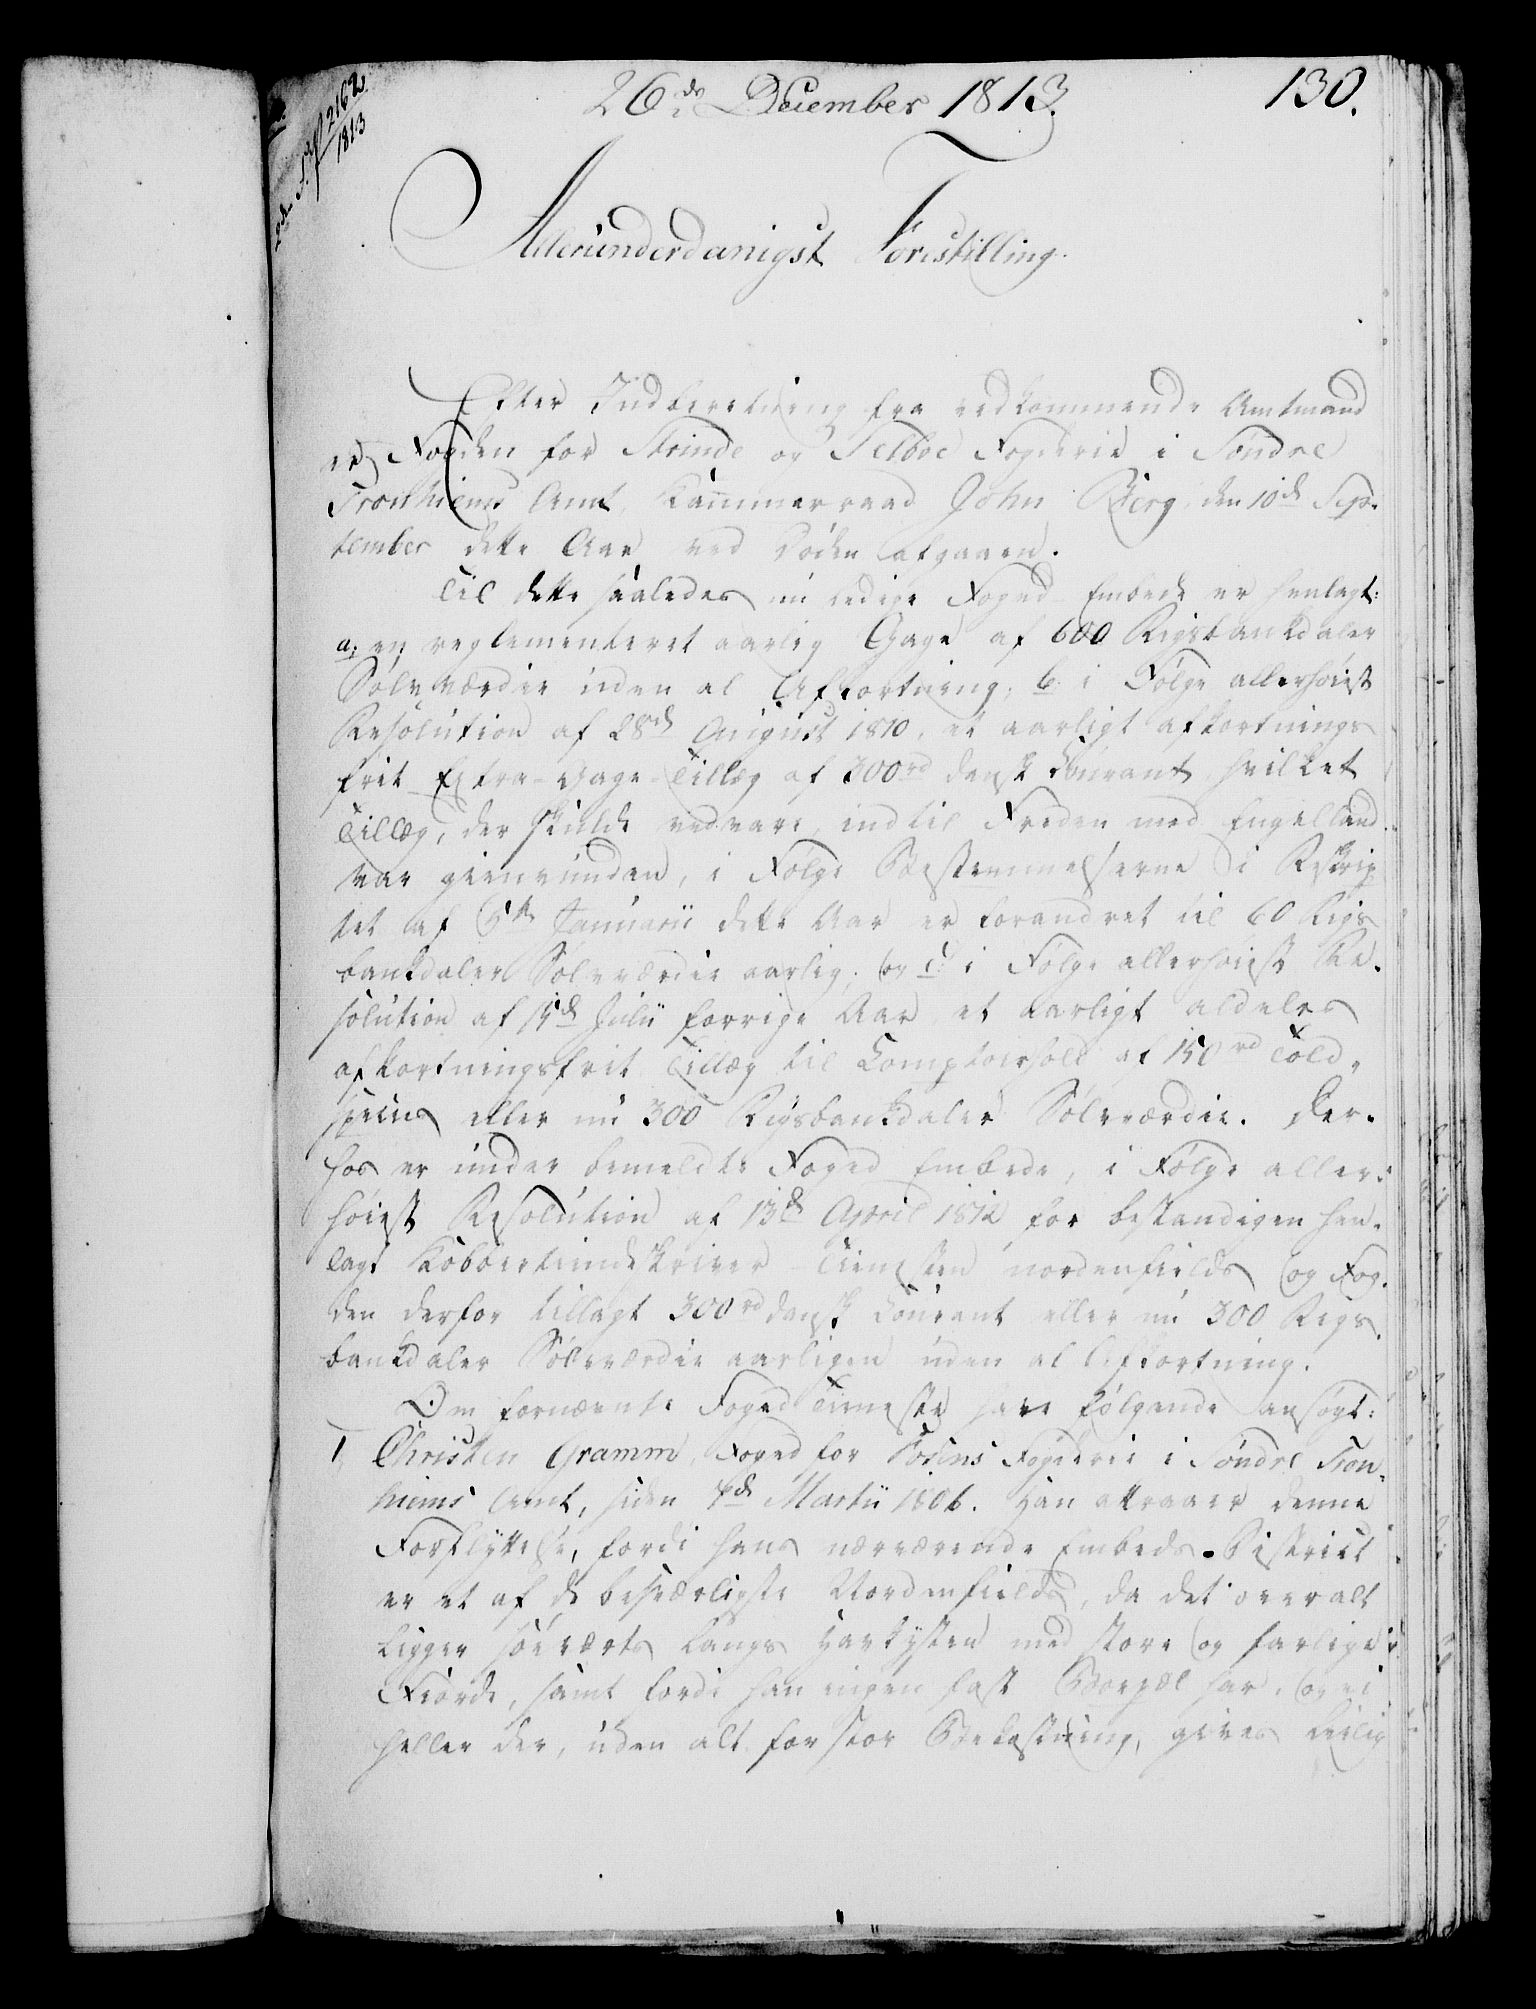 26de December 1813.
130.
1813
Allerunderdanigst Forestilling.
Efter Indberetning fra vedkommende Amtmand
er Fogden for Strinde og Selboe Fogderie i Søndre
Tronhiems Amt, Kammerraad John Berg, den 10de Sep-
tember dette Aar ved Døden afgaaen.
Til dette saaledes nu ledige Foged-Embede er henlagt:
a, en reglementeret aarlig Gage af 600 Rigsbankdaler
Sølvværdie uden al Afkortning; b, i Følge allerhøiest
Resolution af 28de August 1810, et aarligt afkortnings
frit Extra-Gage-Tillæg af 300rd dansk Courant, hvilket
Tillæg, der skulde vedvare, indtil Freden med Engelland
var gienvunden, i Følge Bestemmelserne i Reskrip
tet af 5te Januarii dette Aar er forandret til 60 Rigs
bankdaler Sølvværdie aarlig; og c, i Følge allerhøiest Re-
solution af 15de Julii forrige Aar et aarligt aldeles
afkortningsfrit Tillæg til Comptoirhold af 150rd Told-
specius eller nu 300 Rigsbankdaler Sølvværdie. Der-
hos er under bemeldte Foged Embede, i Følge aller-
høiest Resolution af 13de April 1812 for bestandigen hen-
lagt Kobbertiendeskriver-Tienesten nordenfields og Fog-
den derfor tillagt 300rd dansk Courant eller nu 300 Rigs-
bankdaler Sølvværdie aarligen uden al Afkortning.
Om fornævnte Foged Tieneste have følgende ansøgt:
1, Christen Gramm, Foged for Fosens Fogderie i Søndre Tron-
hiems Amt, siden 7de Martii 1806. Han attraaer denne
Forflyttelse, fordi hans nærværende Embeds-District
er et af de besværligste Nordenfields, da det overalt
ligger søeværts langs Havkysten med store og farlige
Fiorde, samt fordi han ingen fast Boepæl har, og ei
heller der, uden alt for stor Bekostning, gives Leilig